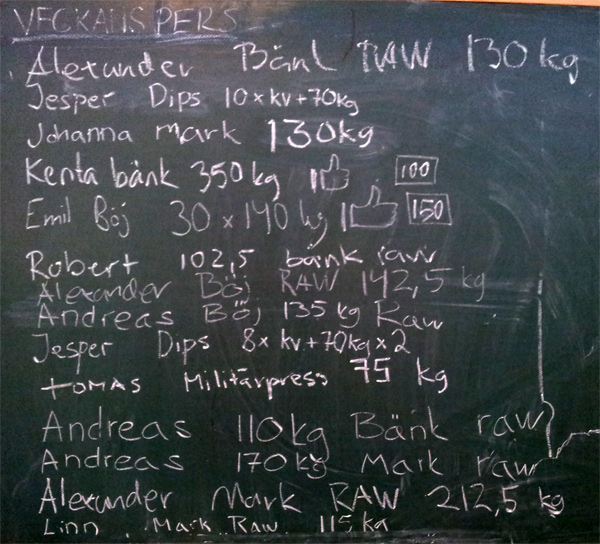 VECKANS PERS
Alexander Bänk RAW 130 kg
Jesper Dips 10xkv+70kg
Johanna mark 130kg
Kenta bänk 350kg 100
Emil Böj 30 x 140 kg 150
Robert 102,5 bänk raw
Alexander Böj RAW 142,5 kg
Andreas Böj 135 kg Raw
Jesper Dips 8x kv+70kg x2
tomas Militärpress 75 kg
Andreas 110kg Bänk raw
Andreas 170kg Mark raw
Alexander Mark RAW 212,5 kg
Linn Mark Raw 115 kg